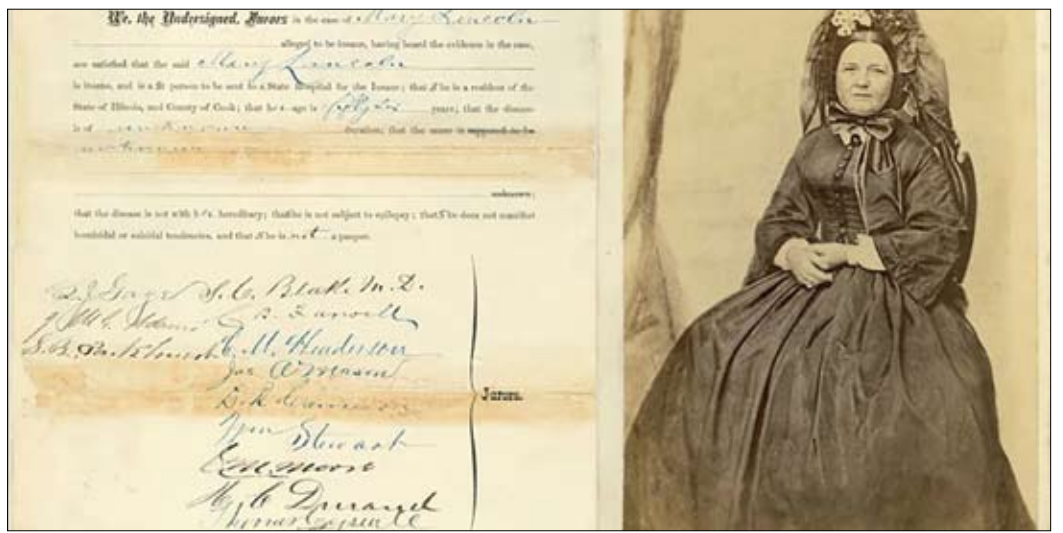 We, the Undersigned, Jurors in the case of Mary Lincoln
alleged to be insane, having heard the evidence in the case,
are satisfied that the said Mary Lincoln
is insane, and is a fit person to be sent to a State Hospital for the Insane; that She is a resident of the
State of Illinois, and County of Cook; that her age is fifty six years; that the disease
is of unknown duration; that the cause is supposed to be
unknown
unknown;
that the disease is not with her hereditary; that She is not subject to epilepsy; that She does not manifest
homicidal or suicidal tendencies, and that She is not a pauper.
L. J. Gage S. C. Blake M.D.
C. B. Farwell
C. M. Henderson
Jas A Mason
Wm Stewart
C M Moore
H. C Durand
Thomas
Jurors.